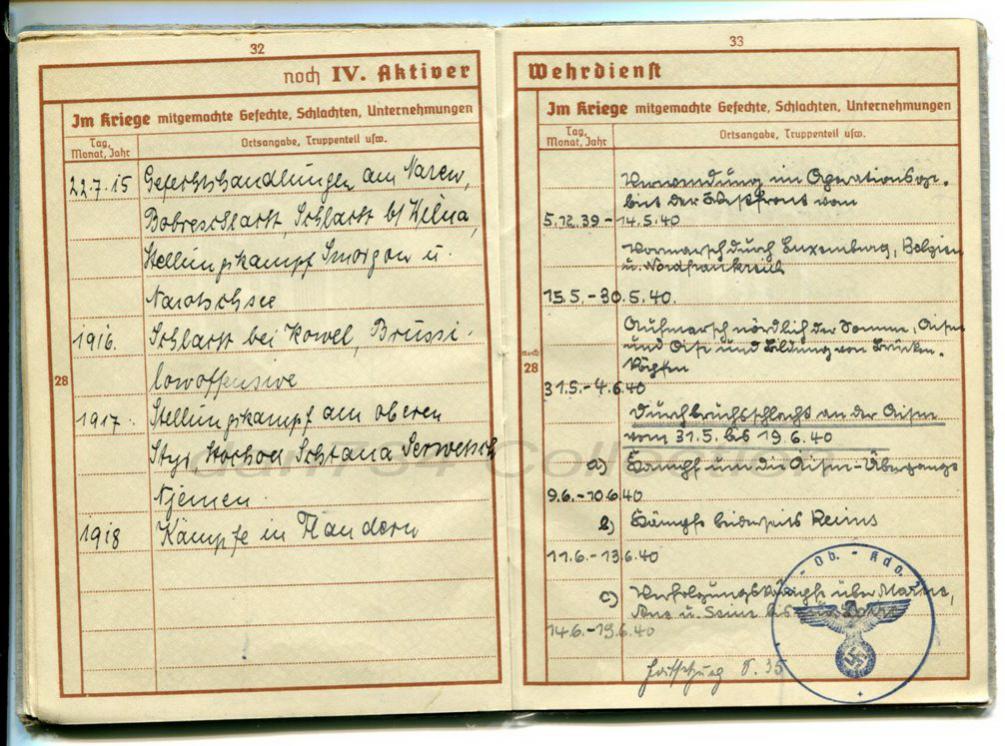 32
noch IV. Aktiver
Im Kriege mitgemachte Gefechte, Schlachten, Unternehmungen
Tag, Monat, Jahr
Ortsangabe, Truppenteil usw.
28
22.7.15 Gefechtshandlungen am Narew,
Bobreschlacht, Schlacht b/ Wilna,
Stellungskampf Smorgon u.
Narotschsee
1916. Schlacht bei Kowel, Brussi-
lowoffensive
1917. Stellungskampf am oberen
Styr Stochod Schtara Serwetsch
Njemen
1918 Kämpfe in Flandern
33
Wehrdienst
Im Kriege mitgemachte Gefechte, Schlachten, Unternehmungen
Tag, Monat, Jahr
Ortsangabe, Truppenteil usw.
noch
28
Verwendung im Operationsge-
biet der Westfront vom
5.12.39 - 14.5.40
Vormarsch durch Luxemburg, Belgien
u. Nordfrankreich
15.5. - 30.5.40.
Aufmarsch nördlich der Somme, Aisne
und Oise und Bildung von Brücken-
köpfen
31.5. - 4.6.40
Durchbruchsschlacht an der Aisne
vom 31.5. bis 19.6.40
a) Kampf um die Aisne-Übergänge
9.6. - 10.6.40
b) Kämpfe beiderseits Reims
11.6. - 13.6.40
c) Verfolgungskämpfe über Marne,
u. Seine bis
14.6. - 19.6.40
Fortsetzung S. 35
Ob. - Kdo.
734 Collection